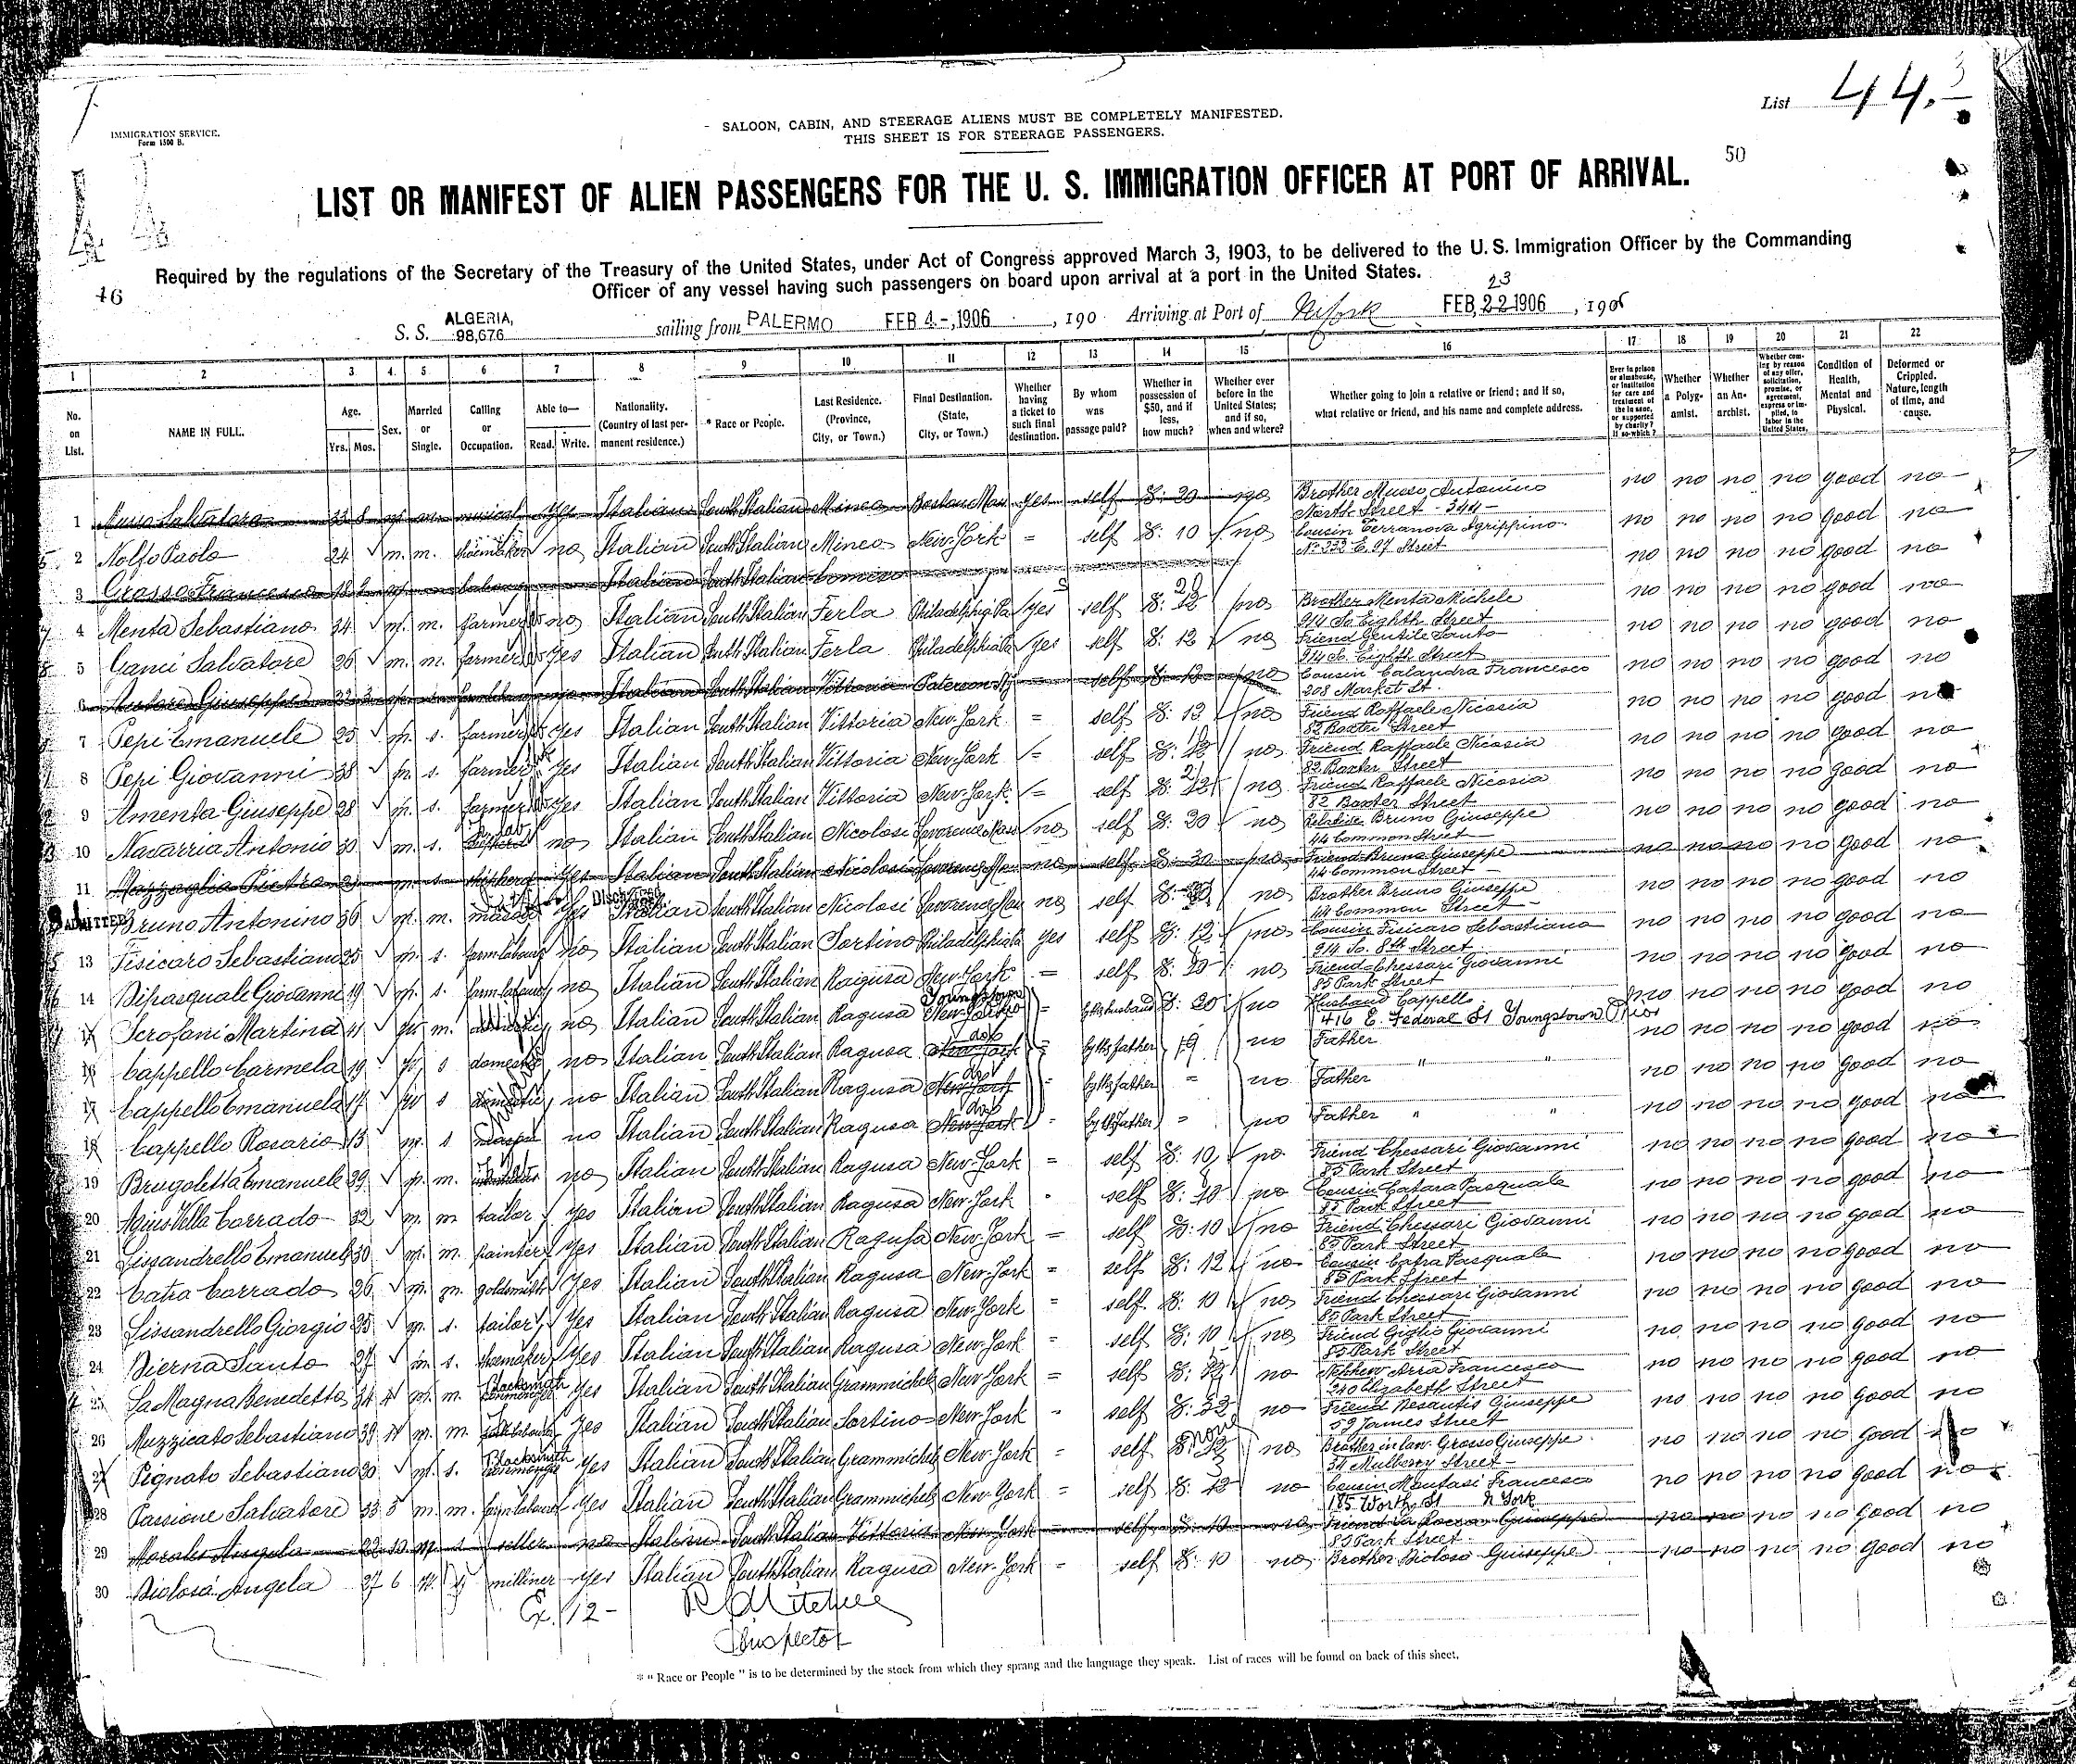 List 44.
IMMIGRATION SERVICE.
Form 1500 B.
SALOON, CABIN, AND STEERAGE ALIENS MUST BE COMPLETELY MANIFESTED.
THIS SHEET IS FOR STEERAGE PASSENGERS.
50
LIST OR MANIFEST OF ALIEN PASSENGERS FOR THE U. S. IMMIGRATION OFFICER AT PORT OF ARRIVAL.
Required by the regulations of the Secretary of the Treasury of the United States, under Act of Congress approved March 3, 1903, to be delivered to the U. S. Immigration Officer by the Commanding
Officer of any vessel having such passengers on board upon arrival at a port in the United States.
46
S. S. ALGERIA, 98,676 sailing from PALERMO FEB 4-,1906, 190 Arriving at Port of N York FEB, 22 1906 23, 1906
1 2 3 4 5 6 7 8 9 10 11 12 13 14 15 16 17 18 19 20 21 22
No. on List.
NAME IN FULL.
Age. Yrs. Mos.
Sex.
Married or Single.
Calling or Occupation.
Able to— Read. Write.
Nationality. (Country of last permanent residence.)
* Race or People.
Last Residence. (Province, City, or Town.)
Final Destination. (State, City, or Town.)
Whether having a ticket to such final destination.
By whom was passage paid?
Whether in possession of $50, and if less, how much?
Whether ever before in the United States; and if so, when and where?
Whether going to join a relative or friend; and if so, what relative or friend, and his name and complete address.
Ever in prison or almshouse, or institution for care and treatment of the insane, or supported by charity? If so which?
Whether a Polygamist.
Whether an Anarchist.
Whether coming by reason of any offer, solicitation, promise, or agreement, express or implied, to labor in the United States.
Condition of Health, Mental and Physical.
Deformed or Crippled. Nature, length of time, and cause.
1 Musso Salvatore 33 8 m. m. musical Yes Italian South Italian Mineo Boston Mass Yes self $: 20 no Brother Musso Antonino North Street - 344 - no no no no good no
2 Nolfo Paolo 24 m. m. shoemaker no Italian South Italian Mineo New-York = self $: 10 no Cousin Terranova Agrippino No 332 E. 97 Street no no no no good no
3 Grasso Francesco 18 Italian South Italian Comiso no no no no good no
4 Menta Sebastiano 34 m. m. farmer no Italian South Italian Ferla Philadelphia Pa Yes self $: 12 no Brother Menta Michele 914 So. Eighth Street no no no no good no
5 Ganci Salvatore 26 m. m. farmer Yes Italian South Italian Ferla Philadelphia Pa Yes self $: 12 no Friend Gentile Santo 914 So. Eighth Street no no no no good no
6 Giuseppe Italian South Italian Vittoria Paterson NJ = self $: 13 no Cousin Calandra Francesco 208 Market St. no no no no good no
7 Pepi Emanuele 25 m. s. farmer Yes Italian South Italian Vittoria New-York = self $: 13 no Friend Raffaele Nicosia 82 Baxter Street no no no no good no
8 Pepi Giovanni 38 m. s. farmer Yes Italian South Italian Vittoria New-York = self $: 12 no Friend Raffaele Nicosia 82 Baxter Street no no no no good no
9 Amenta Giuseppe 28 m. s. farmer Yes Italian South Italian Vittoria New-York = self no Friend Raffaele Nicosia 82 Baxter Street no no no no good no
10 Navarria Antonio 30 m. s. no Italian South Italian Nicolosi no self $: 20 no Relative Bruno Giuseppe 44 Common Street no no no no good no
11 Mazzaglia Pietro m s shepherd Yes Italian South Italian Nicolosi no self $: 30 no Friend Bruno Giuseppe 44 Common Street no no no no good no
ADMITTED Bruno Antonino 36 m. m. Yes Italian South Italian Nicolosi no self no Brother Bruno Giuseppe 44 Common Street no no no no good no
13 Fisicaro Sebastiano 25 m. s. farm labour no Italian South Italian Sortino Philadelphia Pa yes self $: 12 no Cousin Fisicaro Sebastiano 914 So. 8th Street no no no no good no
14 Dipasquale Giovanni 19 m. s. farm labour no Italian South Italian Ragusa New-York = self $: 20 no Friend Chessari Giovanni 85 Park Street no no no no good no
15 Scrofani Martina 41 m. no Italian South Italian Ragusa New-York Youngstown = by the husband $: 20 no Husband Cappello 416 E. Federal St Youngstown Ohio no no no no good no
16 Cappello Carmela 19 s domestic no Italian South Italian Ragusa New-York do = by the father no Father no no no no good no
17 Cappello Emanuela 17 s domestic no Italian South Italian Ragusa New-York do = by the father = no Father " " no no no no good no
18 Cappello Rosario 15 m. s no Italian South Italian Ragusa New-York do - by the father = no Father " " no no no no good no
19 Brugoletta Emanuele 39 m. m. no Italian South Italian Ragusa New-York = self $: 10 no Friend Chessari Giovanni 85 Park Street no no no no good no
20 Corrado 32 m. m tailor Yes Italian South Italian Ragusa New-York self no Cousin Catara Pasquale 85 Park Street no no no no good no
21 Lissandrello Emanuele 30 m. m. painter Yes Italian South Italian Ragusa New-York = self $: 10 no Friend Chessari Giovanni 85 Park Street no no no no good no
22 Catra Corrado 26 m. m. goldsmith Yes Italian South Italian Ragusa New-York = self $: 12 no Cousin Catra Pasquale 85 Park Street no no no no good no
23 Lissandrello Giorgio 25 m. s. tailor Yes Italian South Italian Ragusa New-York = self $: 10 no Friend Chessari Giovanni 85 Park Street no no no no good no
24 Dierna Santo 27 m s. shoemaker Yes Italian South Italian Ragusa New-York = self $: 10 no Friend Giglio Giovanni 85 Park Street no no no no good no
25 La Magna Benedetto 34 m. m. Blacksmith Yes Italian South Italian Grammichele New-York = self no Nephew Arra Francesco 210 Elizabeth Street no no no no good no
26 Muzzicato Sebastiano 39 m. m. Yes Italian South Italian Sortino New-York - self $: 22 no Friend Desantis Giuseppe 59 James Street no no no no good no
27 Pignato Sebastiano 30 m. s. Blacksmith Yes Italian South Italian Grammichele New-York = self none no Brother in law Grosso Giuseppe 34 Mulberry Street no no no no good no
28 Passione Salvatore 33 5 m m. farm labour Yes Italian South Italian Grammichele New-York = self $: 12 no Cousin Montasi Francesco 185 Worth St N York no no no no good no
29 Morale Angelo 22 10 m s no Italian South Italian Vittoria New-York = self $: 10 no Friend La Rocca Giuseppe 85 Park Street no no no no good no
30 Biolosa Angela 27 6 milliner Yes Italian South Italian Ragusa New-York = self $: 10 no Brother Biolosa Giuseppe no no no no good no
Ex. 12-
Inspector
* "Race or People" is to be determined by the stock from which they sprang and the language they speak. List of races will be found on back of this sheet.